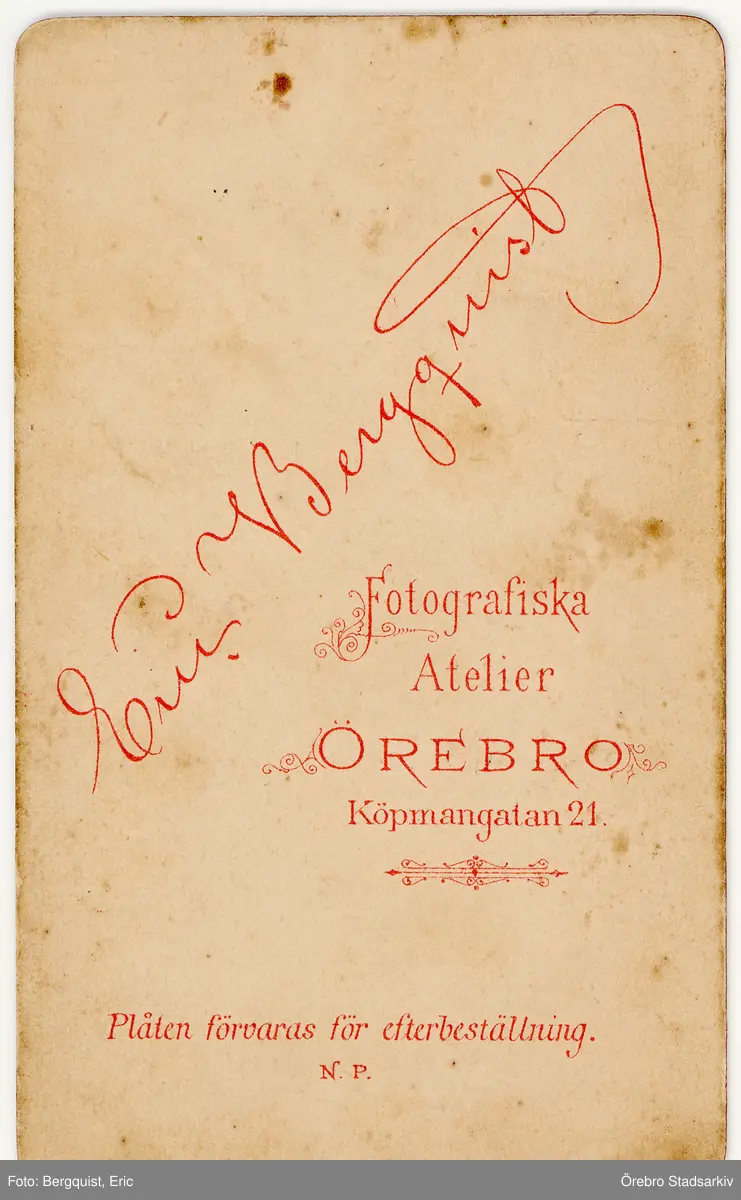 Eric Bergquist
Fotografiska
Atelier
ÖREBRO
Köpmangatan 21.
Plåten förvaras för efterbeställning.
N. P.
Foto: Bergquist, Eric
Örebro Stadsarkiv